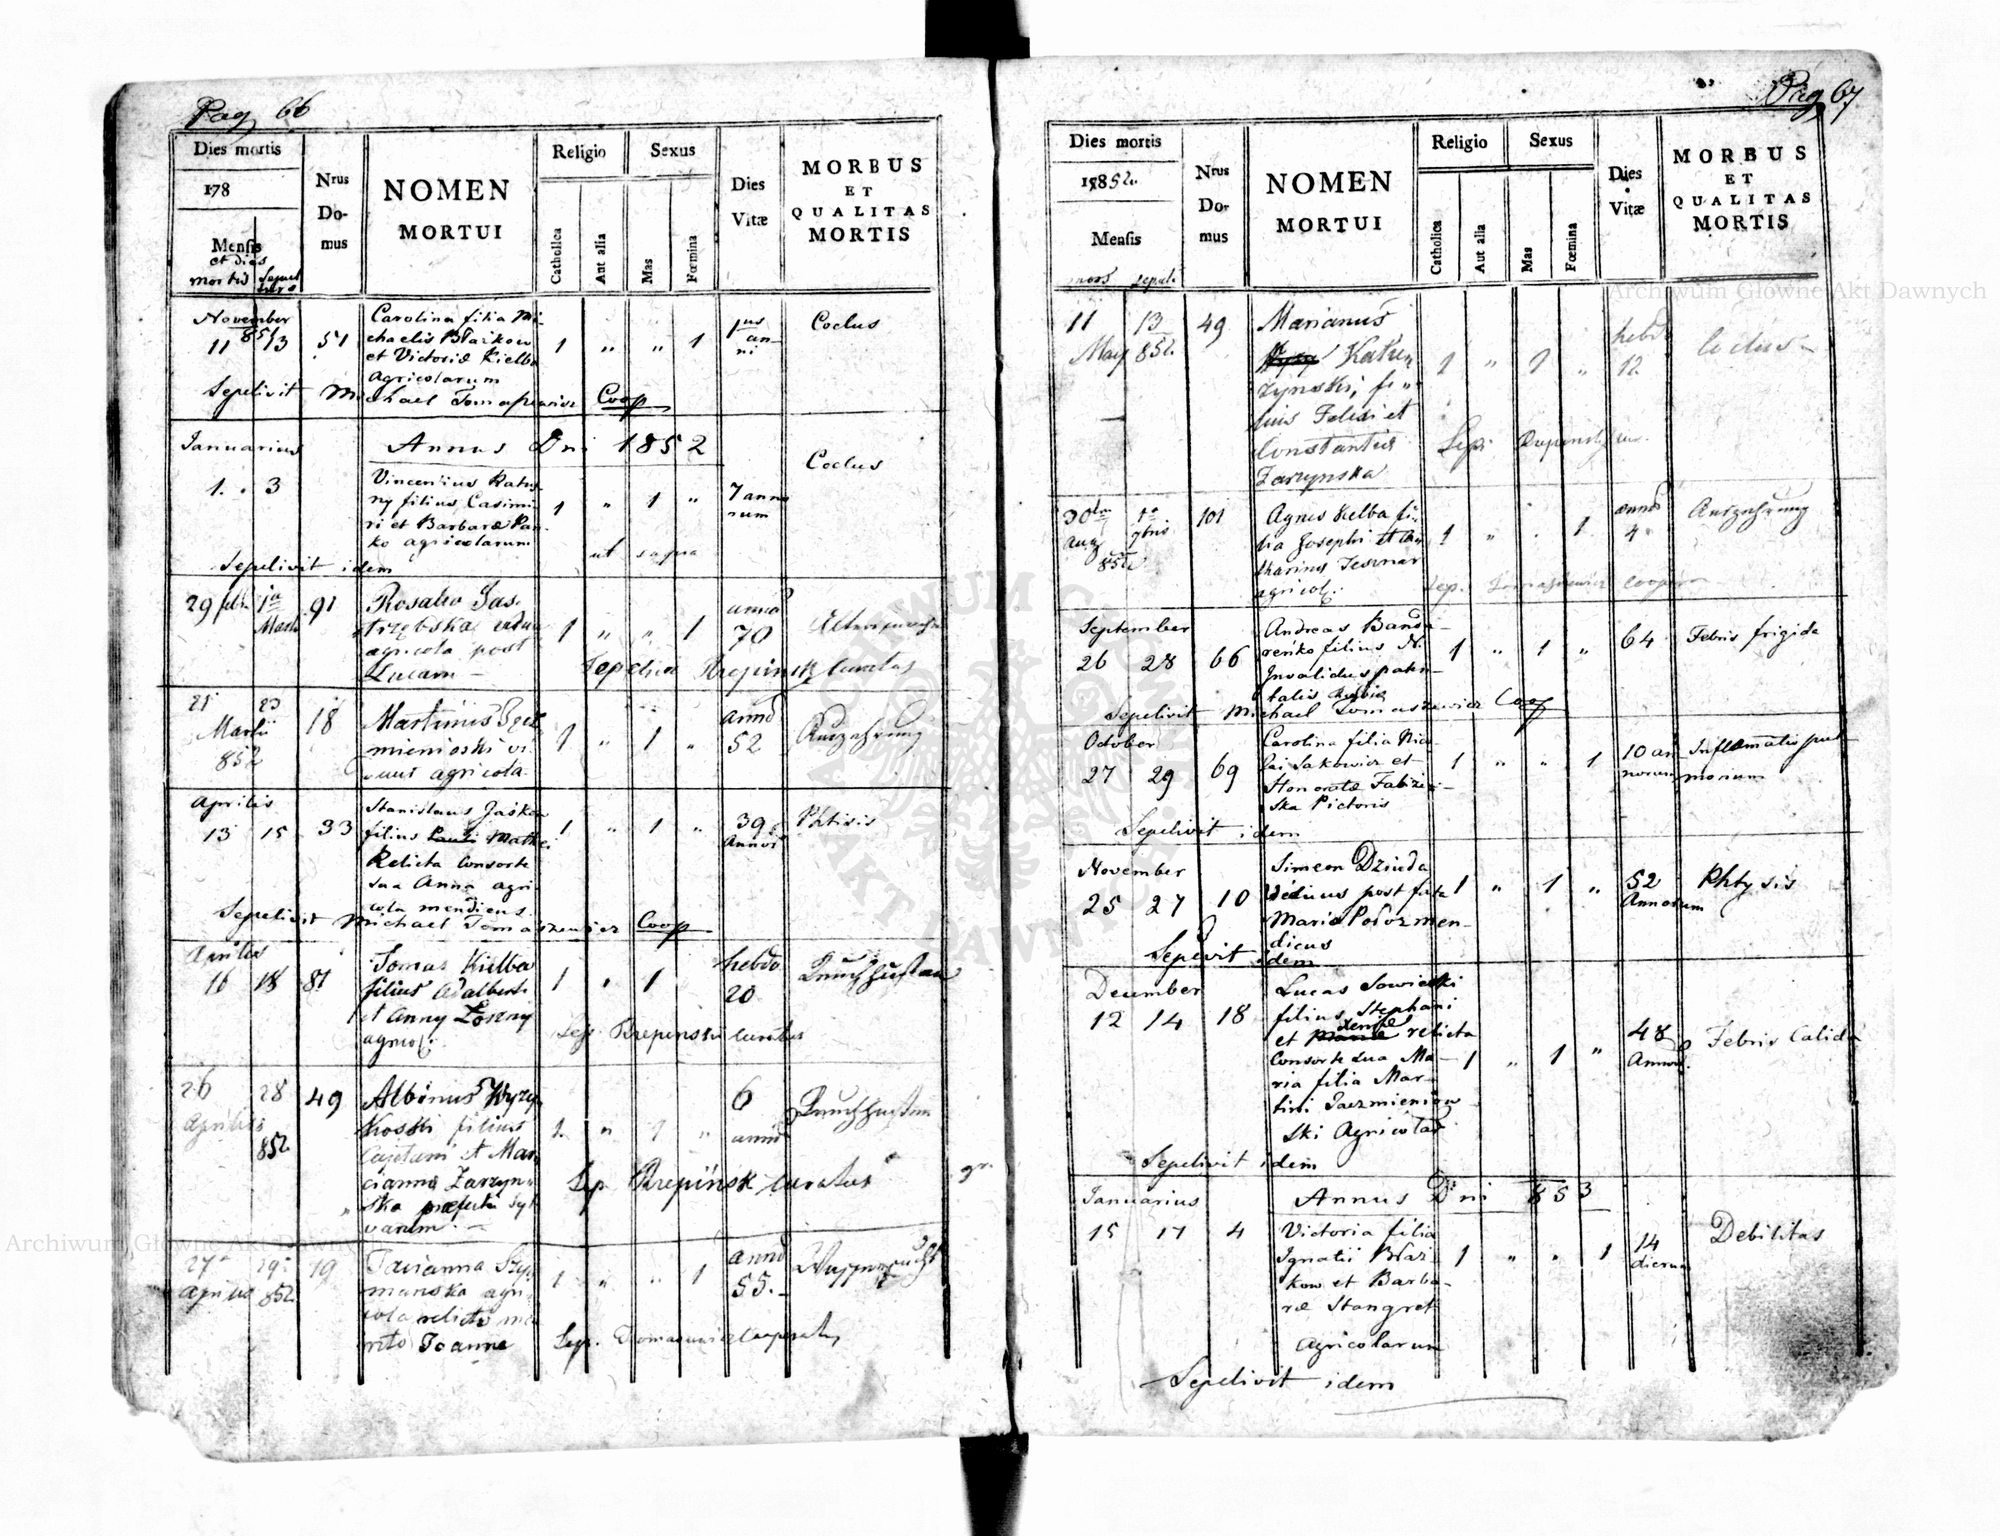 Pag 66
Dies mortis
178
Mensis
et dies
mortis sepul
turae
Nrus
Do-
mus
NOMEN
MORTUI
Religio
Catholica
Aut alia
Sexus
Mas
Fœmina
Dies
Vitæ
MORBUS
ET
QUALITAS
MORTIS
November
11 851 13 51 Carolina filia Mi-
chaelis Błażkow
et Victoriæ Kielba
Agricolarum
1 " " 1
Coclus
Sepelivit Michael Tomaszewicz Coop
Januarius Annus Dni 1852
1. 3 Vincentius
ny filius Casimi-
ri et Barbaræ Pan-
ko agricolarum
1 " 1 " 7 anno
rum
Coclus
ut supra
Sepelivit idem
29 febr. 1a
Martii
91 Rosalia Jas-
trzębska vidua
agricola post
Lucam -
1 " " 1 anno
70
Sepeliit Krepinsk curatus
21 23
Martii
852
18 Martinus
mienioski vi-
duus agricola
1 " 1 " anno
52
Auszehrung
Aprilis
13 15 33 Stanislaus Jaśkow
filius Mathei
Relicta Consorte
sua Anna agri-
cola mendicus
1 " 1 " 39
Annor
Phtisis
Sepelivit Michael Tomaszewicz Coop
Aprilis
16 18 81 Tomas Kielba
filius Adalberti
et Anny
agricol.
1 " 1 hebdo
20
Keuchhusten
Sep. Krepinski curatus
26 28
Aprilis
852
49 Albinus Wyrzy
koski filius
Cajetani et Mar
cianna Zarzyn-
ska præfecti syl
varum. -
1 " 1 " 6
anno
Keuchhusten
Sep Krepinsk curatus
27 29 19
Aprilis 852
Marianna Szy
manska agri
cola relicto ma
rito Joanne
1 " " 1 anno
55. -
Wassersucht
Sep. Tomaszewicz Cooperator
Pag 67
Dies mortis
178 52
Mensis
mors sepult
Nrus
Do-
mus
NOMEN
MORTUI
Religio
Catholica
Aut alia
Sexus
Mas
Fœmina
Dies
Vitæ
MORBUS
ET
QUALITAS
MORTIS
11 13 49
May 852
Marianus
Katur
zynski, fi-
lius Felici et
Constantia
Zarzynska
1 " 1 " hebdo
12
Coclus -
Sep.
30 1a 101
Aug 7bris
852
Agnes Kielba fi-
lia Josephi et Ca
tharina Tesznar
agricol.
1 " . 1 anno
4
Auszehrung
Sep. Tomaszewicz Cooperator
September
26 28 66 Andreas Banda-
reńko filius N.
Invalidus patri-
talis
1 " 1 " 64
Febris frigida
Sepelivit Michael Tomaszewicz Coop
October
27 29 69 Carolina filia Nico-
lai Sakowicz et
Honoratæ Fabizew-
ska Pictoris
1 " " 1 10 an
norum
Inflamatio pul
monum
Sepelivit idem
November
25 27 10 Simeon Dziuda
viduus post fata
Mariæ Powoz men-
dicus
1 " 1 " 52
Annorum
Phtysis
Sepelivit idem
December
12 14 18 Lucas Sowietki
filius Stephani
et relicta
Consorte sua Ma-
ria filia Mar-
tini Jaczmieniow
ski Agricolar
1 " 1 " 48
Annor.
Febris Calida
Sepelivit idem
Januarius Annus Dni 853
15 17 4 Victoria filia
Ignatii Błaz-
kow et Barba-
ræ Stangret
Agricolarum
1 " " 1 14
dierum
Debilitas
Sepelivit idem
Archiwum Główne Akt Dawnych
Archiwum Główne Akt Dawnych
ARCHIWUM GŁÓWNE AKT DAWNYCH